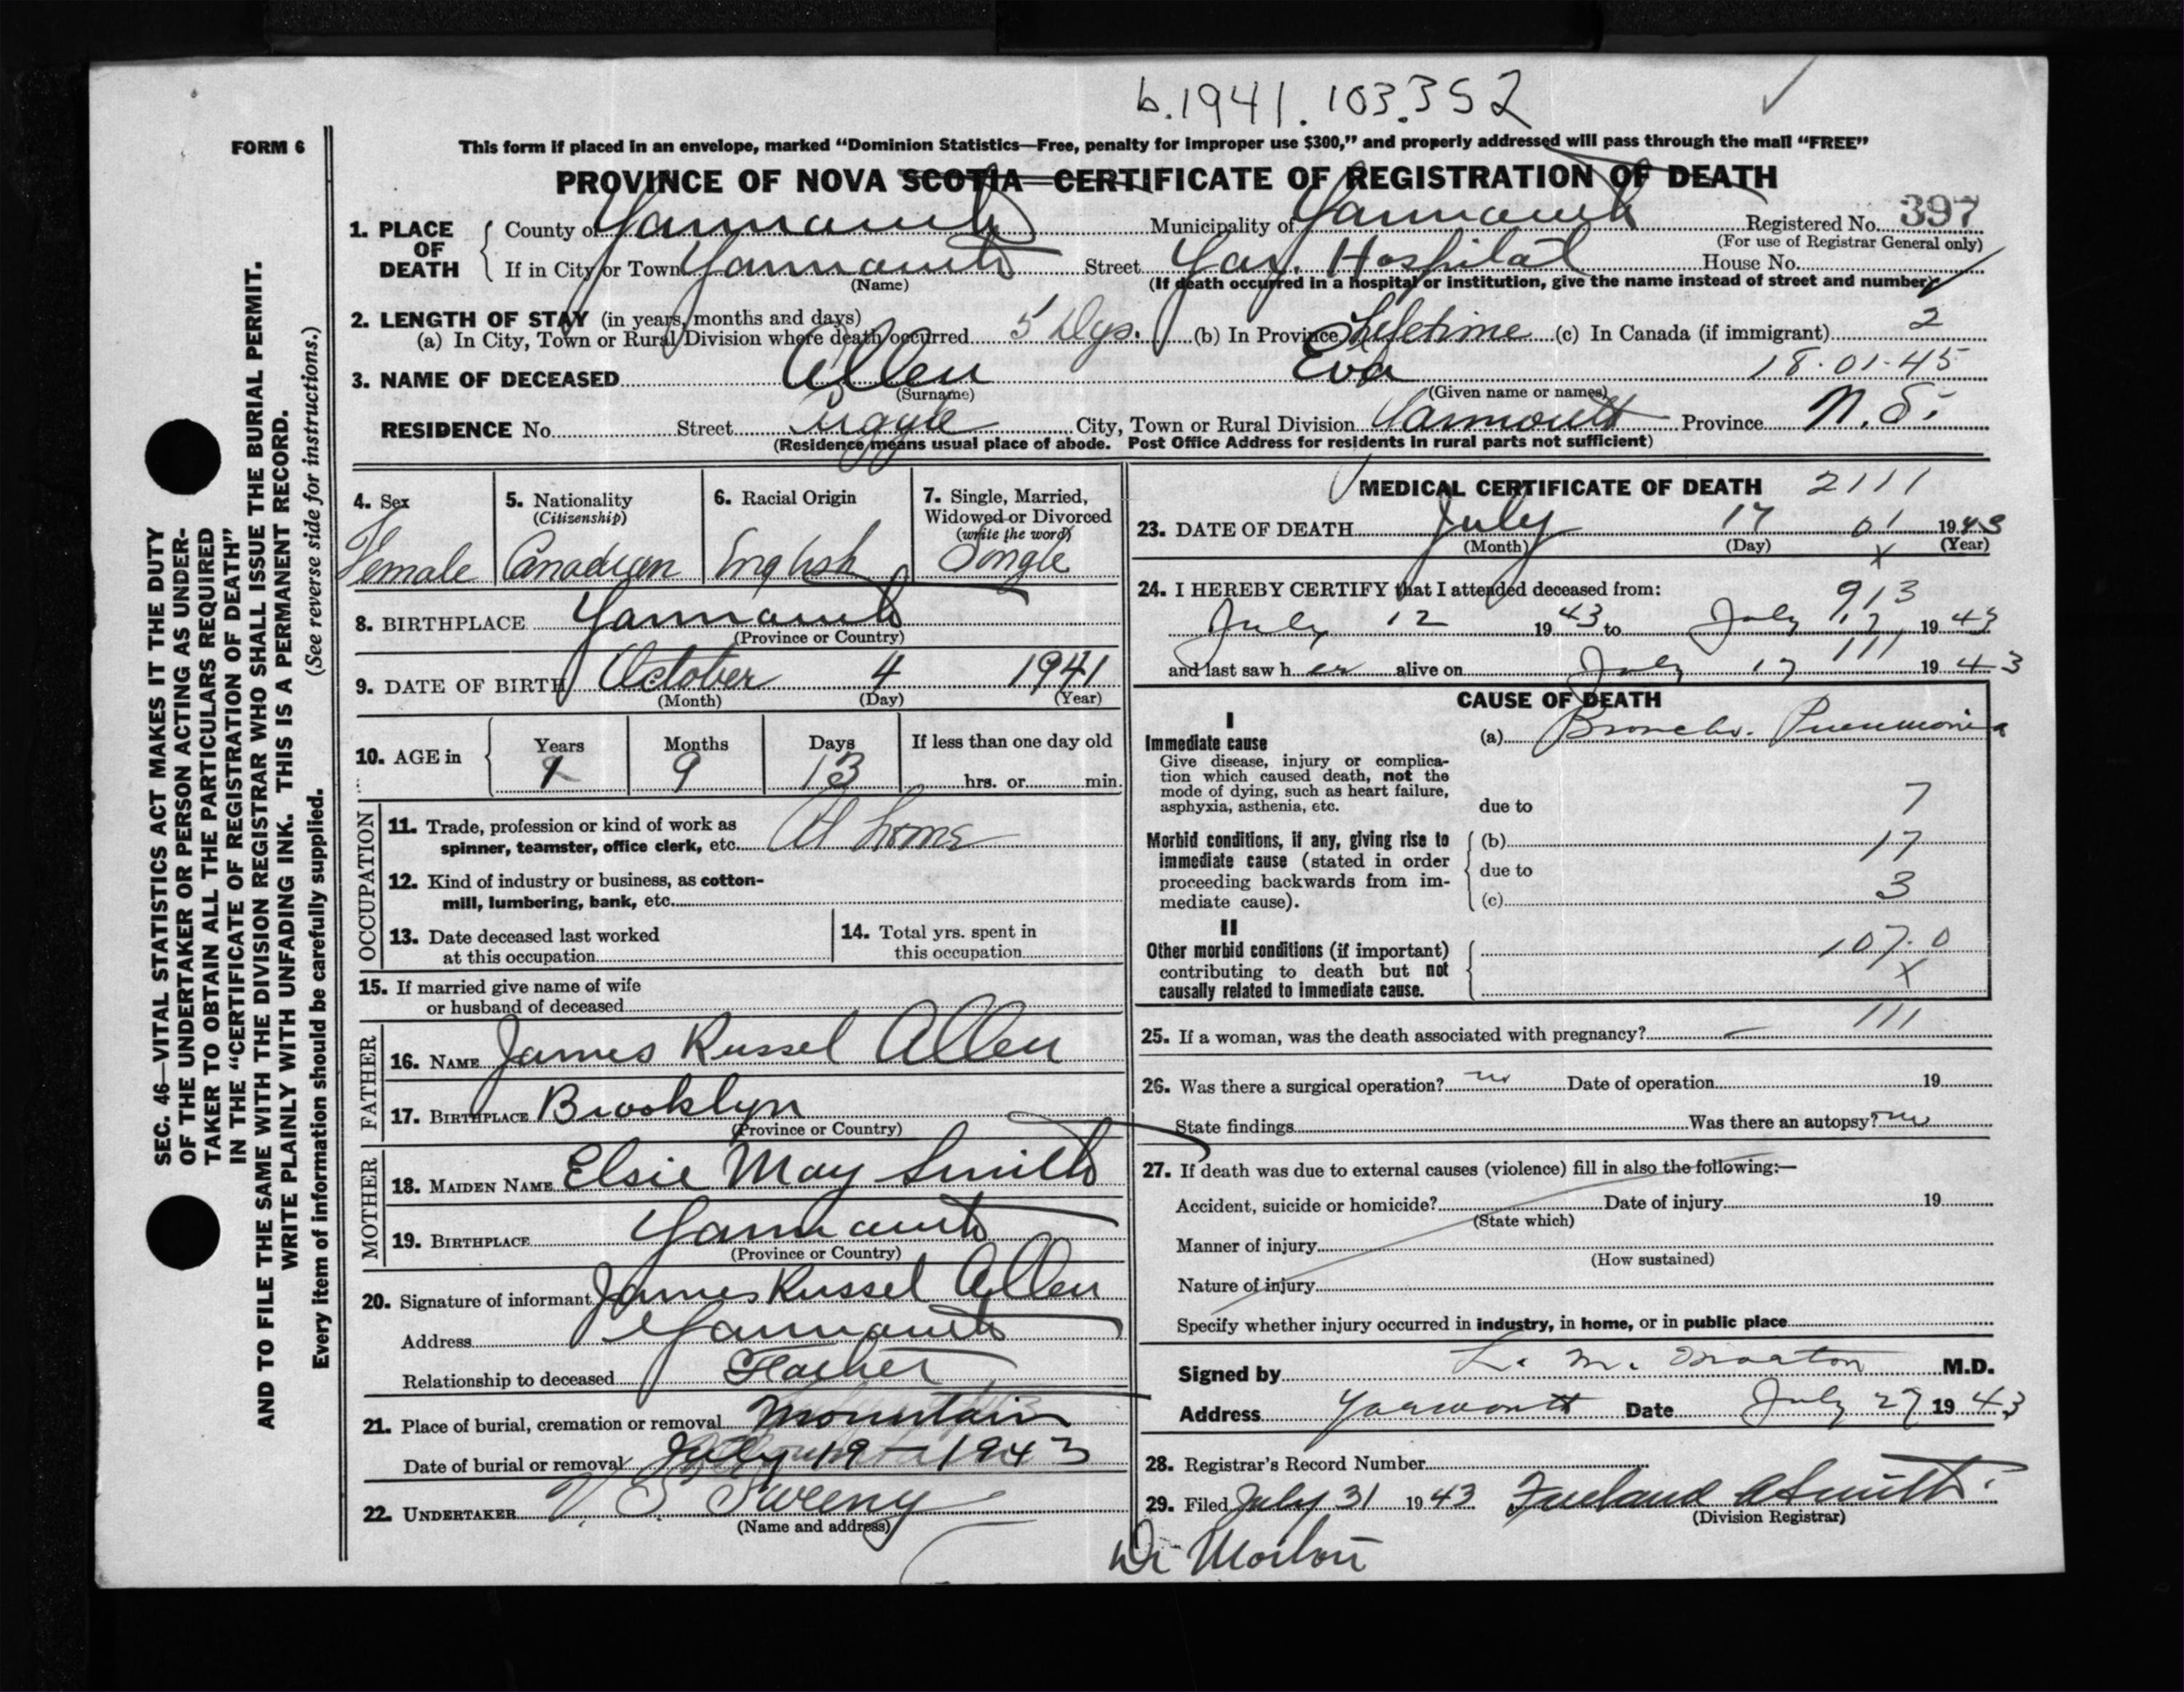 b.1941.103.352
FORM 6
This form if placed in an envelope, marked “Dominion Statistics—Free, penalty for improper use $300,” and properly addressed will pass through the mail “FREE”
PROVINCE OF NOVA SCOTIA—CERTIFICATE OF REGISTRATION OF DEATH
1. PLACE OF DEATH County of Yarmouth Municipality of Yarmouth Registered No. 397
(For use of Registrar General only)
If in City or Town Yarmouth Street Yar. Hospital House No.
(Name) (If death occurred in a hospital or institution, give the name instead of street and number)
2. LENGTH OF STAY (in years, months and days)
(a) In City, Town or Rural Division where death occurred 5 Dys. (b) In Province Lifetime (c) In Canada (if immigrant) 2
18.01.45
3. NAME OF DECEASED Allen Eva
(Surname) (Given name or names)
RESIDENCE No. Street Argyle City, Town or Rural Division Yarmouth Province N.S.
(Residence means usual place of abode. Post Office Address for residents in rural parts not sufficient)
4. Sex Female
5. Nationality (Citizenship) Canadian
6. Racial Origin English
7. Single, Married, Widowed or Divorced (write the word) Single
8. BIRTHPLACE Yarmouth
(Province or Country)
9. DATE OF BIRTH October 4 1941
(Month) (Day) (Year)
10. AGE in Years 1 Months 9 Days 13 If less than one day old
hrs. or min.
OCCUPATION
11. Trade, profession or kind of work as
spinner, teamster, office clerk, etc. At home
12. Kind of industry or business, as cotton-
mill, lumbering, bank, etc.
13. Date deceased last worked
at this occupation
14. Total yrs. spent in
this occupation
15. If married give name of wife
or husband of deceased
FATHER
16. NAME James Russel Allen
17. BIRTHPLACE Brooklyn
(Province or Country)
MOTHER
18. MAIDEN NAME Elsie May Smith
19. BIRTHPLACE Yarmouth
(Province or Country)
20. Signature of informant James Russel Allen
Address Yarmouth
Relationship to deceased Father
21. Place of burial, cremation or removal Mountain
Date of burial or removal July 19 - 1943
22. UNDERTAKER V. S. Sweeny
(Name and address)
MEDICAL CERTIFICATE OF DEATH 2111
23. DATE OF DEATH July 17 01 1943
(Month) (Day) X (Year)
24. I HEREBY CERTIFY that I attended deceased from:
913
July 12 1943 to July 17, 1943
111
and last saw her alive on July 17 1943
CAUSE OF DEATH
I
Immediate cause
Give disease, injury or complica-
tion which caused death, not the
mode of dying, such as heart failure,
asphyxia, asthenia, etc.
(a) Broncho. Pneumonia
due to 7
Morbid conditions, if any, giving rise to
immediate cause (stated in order
proceeding backwards from im-
mediate cause).
(b) 17
due to
(c) 3
II
Other morbid conditions (if important)
contributing to death but not
causally related to immediate cause.
107.0
X
25. If a woman, was the death associated with pregnancy? — 111
26. Was there a surgical operation? no Date of operation 19
State findings Was there an autopsy? no
27. If death was due to external causes (violence) fill in also the following:—
Accident, suicide or homicide? Date of injury 19
(State which)
Manner of injury
(How sustained)
Nature of injury
Specify whether injury occurred in industry, in home, or in public place
Signed by L. M. Morton M.D.
Address Yarmouth Date July 27 1943
28. Registrar's Record Number
29. Filed July 31 1943 A Smith
(Division Registrar)
Dr Morton
SEC. 46—VITAL STATISTICS ACT MAKES IT THE DUTY
OF THE UNDERTAKER OR PERSON ACTING AS UNDER-
TAKER TO OBTAIN ALL THE PARTICULARS REQUIRED
IN THE “CERTIFICATE OF REGISTRATION OF DEATH”
AND TO FILE THE SAME WITH THE DIVISION REGISTRAR WHO SHALL ISSUE THE BURIAL PERMIT.
WRITE PLAINLY WITH UNFADING INK. THIS IS A PERMANENT RECORD.
(See reverse side for instructions.)
Every item of information should be carefully supplied.